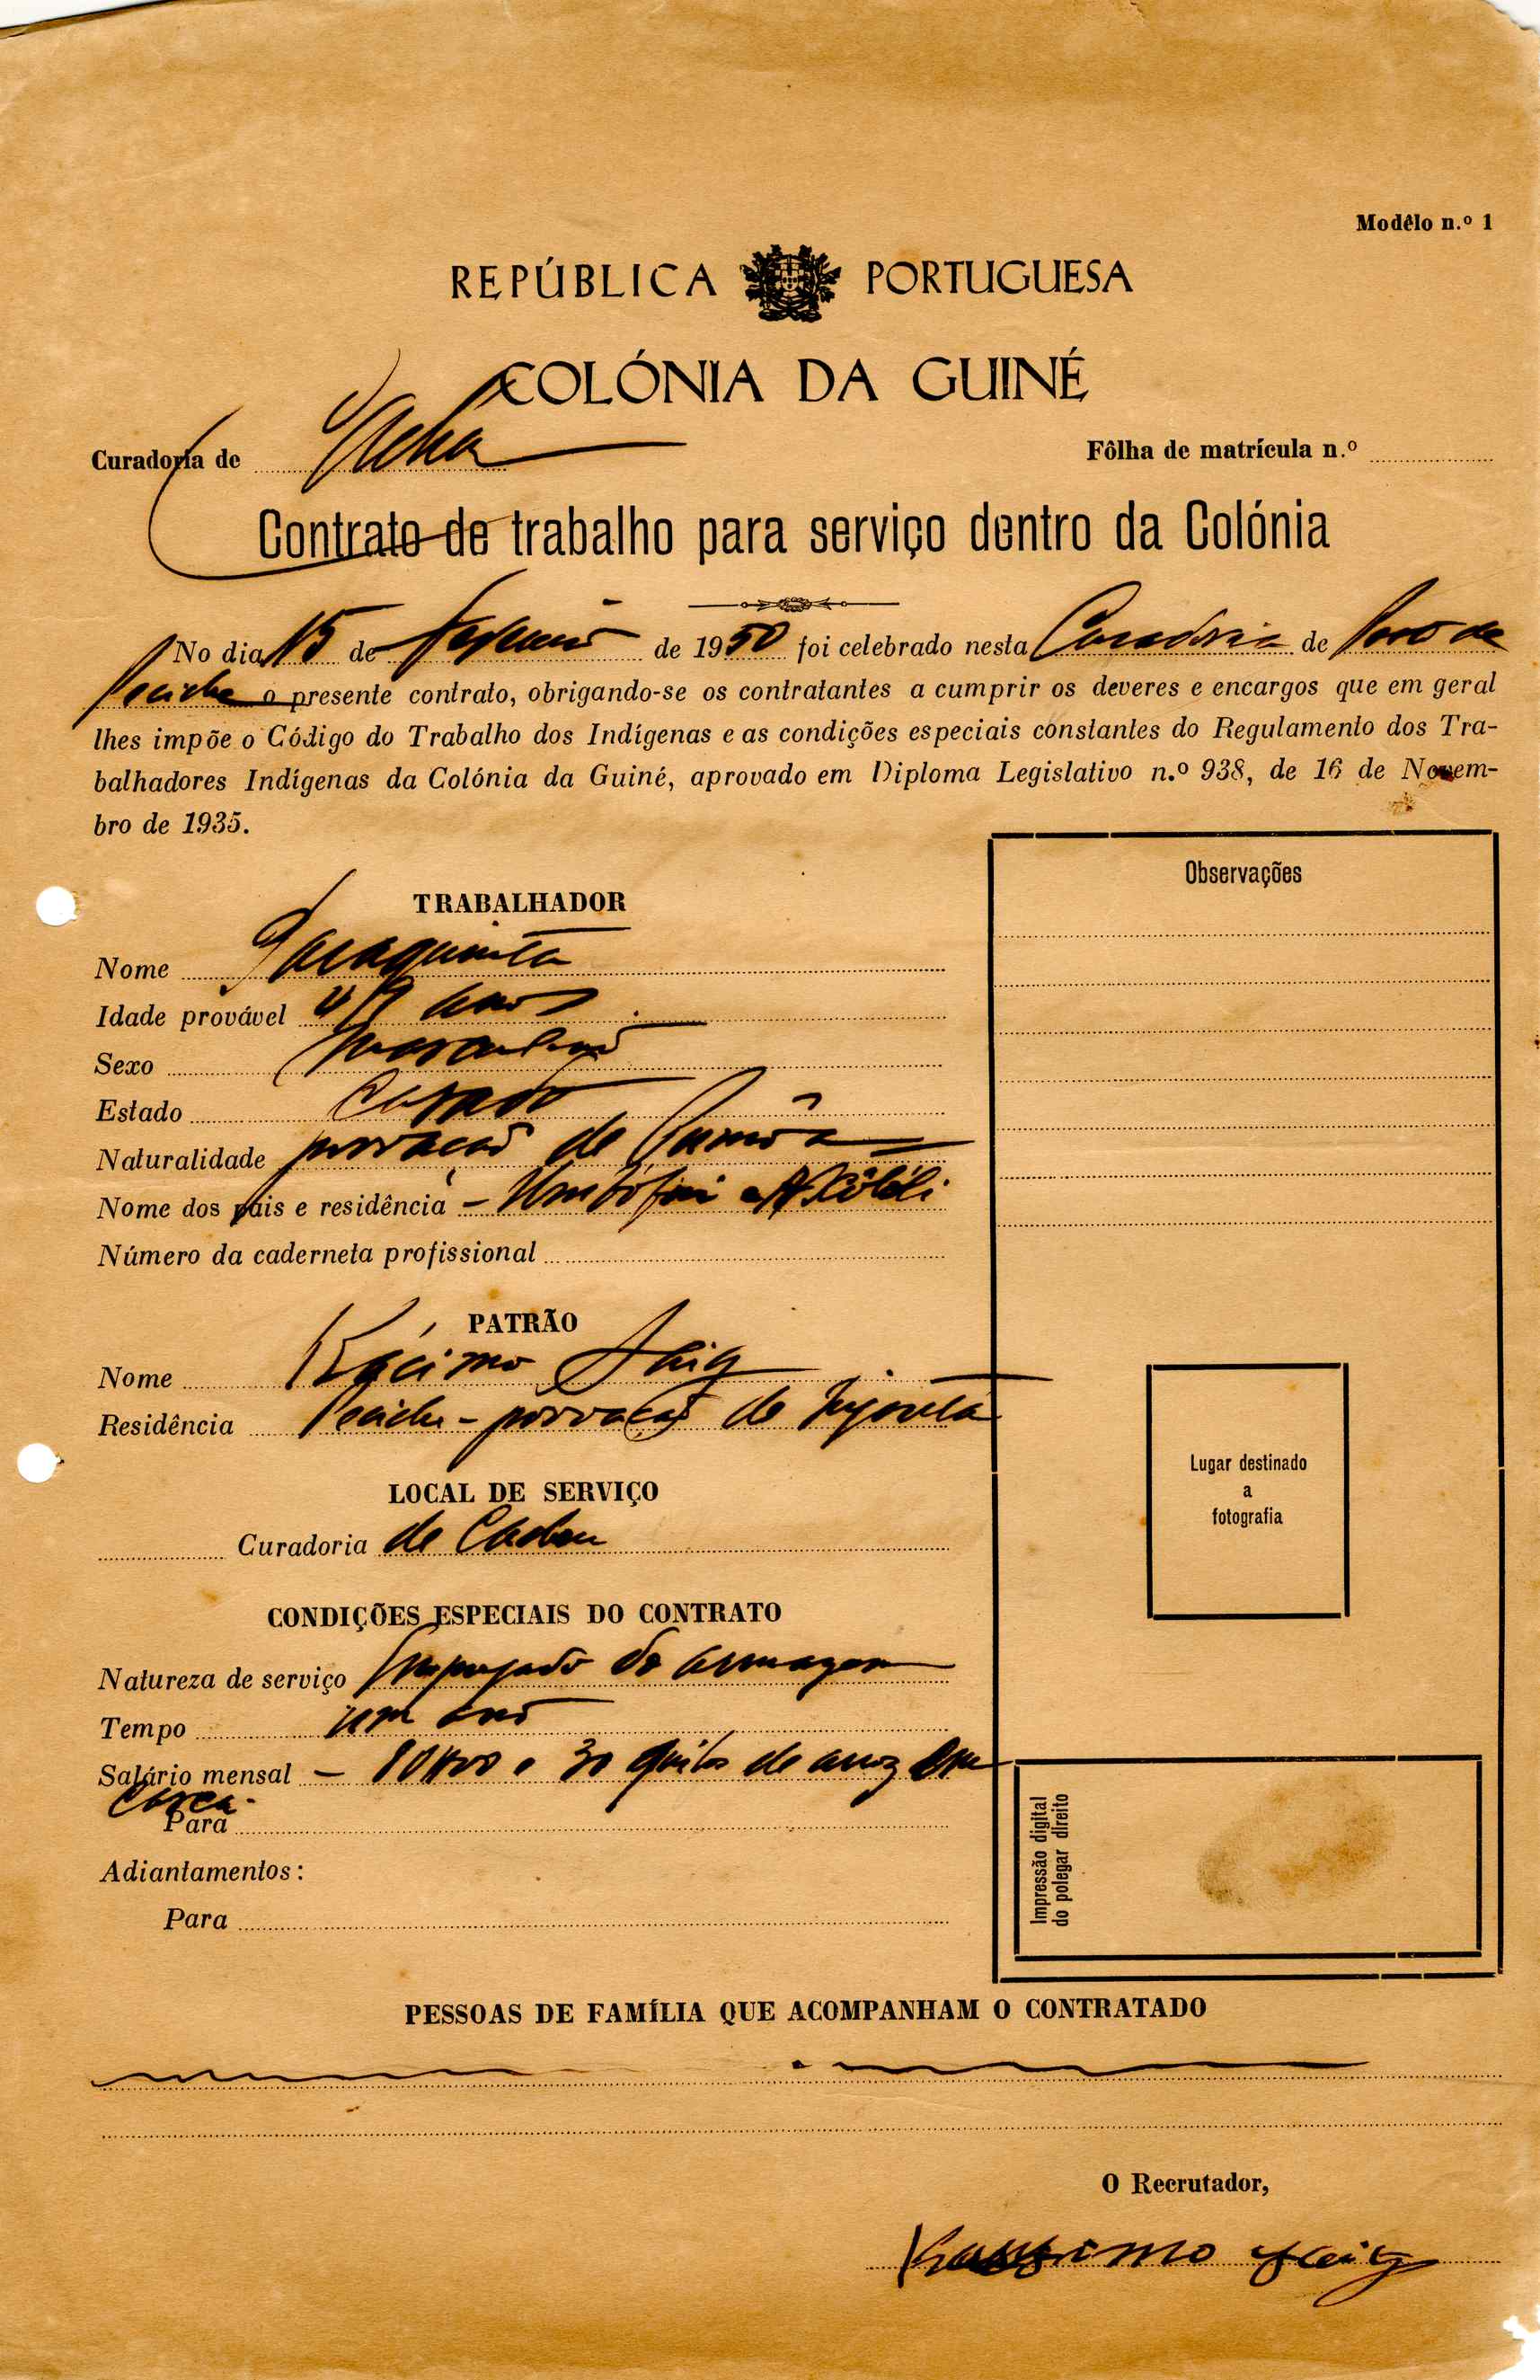 Modêlo n.º 1
REPÚBLICA PORTUGUESA
COLÓNIA DA GUINÉ
Curadoria de
Fôlha de matrícula n.º
Contrato de trabalho para serviço dentro da Colónia
No dia 15 de de 1950 foi celebrado nesta Curadoria de
o presente contrato, obrigando-se os contratantes a cumprir os deveres e encargos que em geral
lhes impõe o Código do Trabalho dos Indígenas e as condições especiais constantes do Regulamento dos Tra-
balhadores Indígenas da Colónia da Guiné, aprovado em Diploma Legislativo n.º 938, de 16 de Novem-
bro de 1935.
Observações
TRABALHADOR
Nome
Idade provável anos
Sexo masculino
Estado Casado
Naturalidade de
Nome dos pais e residência -
Número da caderneta profissional
PATRÃO
Nome
Residência Peciche - de
Lugar destinado
a
fotografia
LOCAL DE SERVIÇO
Curadoria de
CONDIÇÕES ESPECIAIS DO CONTRATO
Natureza de serviço Empregado de armazem
Tempo um ano
Salário mensal - 30 quilos de arroz em
casca.
Para
Adiantamentos:
Para
Impressão digital
do polegar direito
PESSOAS DE FAMÍLIA QUE ACOMPANHAM O CONTRATADO
O Recrutador,